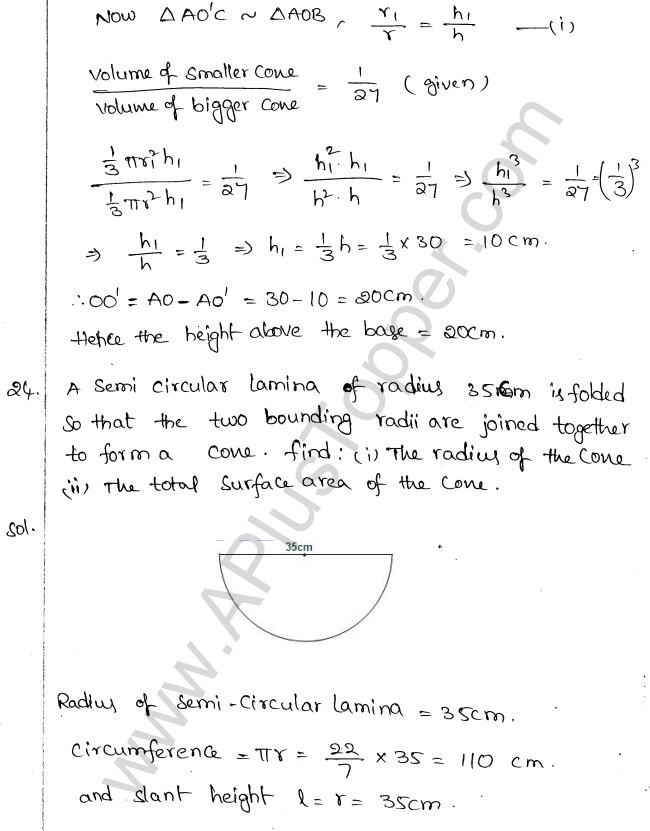 Now △AO'C ~ △AOB, r₁/r = h₁/h —(i)
volume of smaller cone / volume of bigger cone = 1/27 (given)
1/3 πr₁² h₁ / 1/3 πr² h₁ = 1/27 ⇒ h₁²·h₁ / h²·h = 1/27 ⇒ h₁³/h³ = 1/27 = (1/3)³
⇒ h₁/h = 1/3 ⇒ h₁ = 1/3 h = 1/3 × 30 = 10cm.
∴ OO' = AO - AO' = 30 - 10 = 20cm.
Hence the height above the base = 20cm.
24. A semi circular lamina of radius 35cm is folded
so that the two bounding radii are joined together
to form a cone. find: (i) The radius of the cone
(ii) The total surface area of the cone.
Sol.
35cm
Radius of semi-circular lamina = 35cm.
circumference = πr = 22/7 × 35 = 110 cm.
and slant height l = r = 35cm.
www.APlusTopper.com